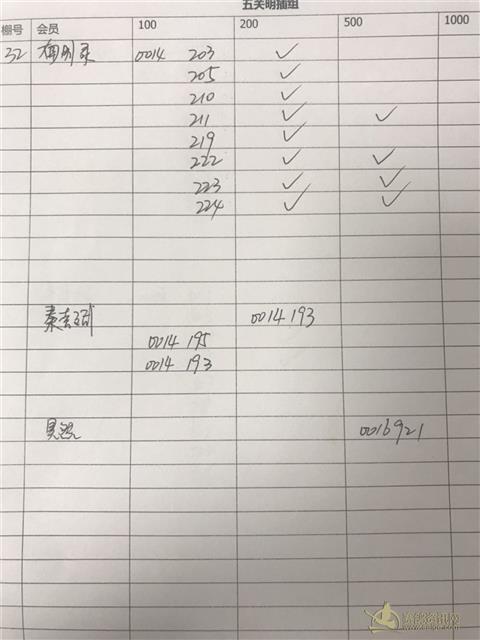 五关明插组
棚号 会员 100 200 500 1000
32 0014 203 ✓
205 ✓
210 ✓
211 ✓ ✓
219 ✓
222 ✓ ✓
223 ✓ ✓
224 ✓ ✓
0014 193
0014 195
0014 193
0016921